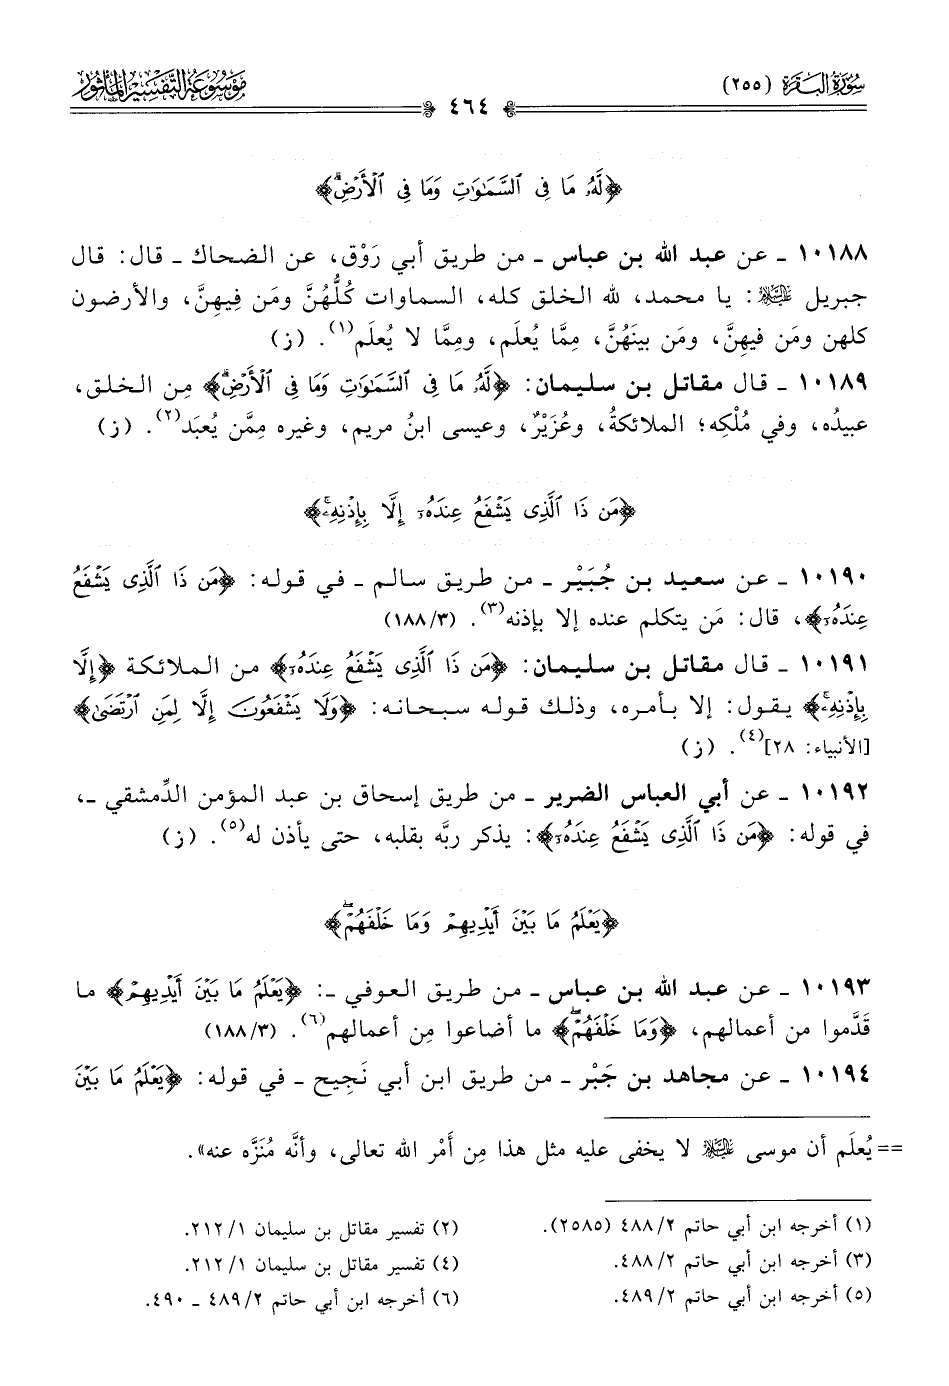 سورة البقرة (٢٥٥)
٤٦٤
موسوعة التفسير المأثور
﴿لَّهُۥ مَا فِى ٱلسَّمَٰوَٰتِ وَمَا فِى ٱلْأَرْضِۗ﴾
١٠١٨٨ ـ عن عبد الله بن عباس ـ من طريق أبي رَوْق، عن الضحاك ـ قال: قال
جبريل عليه السلام: يا محمد، لله الخلق كله، السماوات كُلُّهُنَّ ومَن فِيهِنَّ، والأرضون
كلهن ومَن فيهِنَّ، ومَن بينَهُنَّ، مِمَّا يُعلَم، ومِمَّا لا يُعلَم(١). (ز)
١٠١٨٩ ـ قال مقاتل بن سليمان: ﴿لَّهُۥ مَا فِى ٱلسَّمَٰوَٰتِ وَمَا فِى ٱلْأَرْضِۗ﴾ مِن الخلق،
عبيدُه، وفي مُلْكِه؛ الملائكةُ، وعُزَيْرٌ، وعيسى ابنُ مريم، وغيره مِمَّن يُعبَد(٢). (ز)
﴿مَن ذَا ٱلَّذِى يَشْفَعُ عِندَهُۥٓ إِلَّا بِإِذْنِهِۦۚ﴾
١٠١٩٠ ـ عن سعيد بن جُبَيْر ـ من طريق سالم ـ في قوله: ﴿مَن ذَا ٱلَّذِى يَشْفَعُ
عِندَهُۥٓ﴾، قال: مَن يتكلم عنده إلا بإذنه(٣). (١٨٨/٣)
١٠١٩١ ـ قال مقاتل بن سليمان: ﴿مَن ذَا ٱلَّذِى يَشْفَعُ عِندَهُۥٓ﴾ من الملائكة ﴿إِلَّا
بِإِذْنِهِۦۚ﴾ يقول: إلا بأمره، وذلك قوله سبحانه: ﴿وَلَا يَشْفَعُونَ إِلَّا لِمَنِ ٱرْتَضَىٰ﴾
[الأنبياء: ٢٨](٤). (ز)
١٠١٩٢ ـ عن أبي العباس الضرير ـ من طريق إسحاق بن عبد المؤمن الدِّمشقي ـ،
في قوله: ﴿مَن ذَا ٱلَّذِى يَشْفَعُ عِندَهُۥٓ﴾: يذكر ربَّه بقلبه، حتى يأذن له(٥). (ز)
﴿يَعْلَمُ مَا بَيْنَ أَيْدِيهِمْ وَمَا خَلْفَهُمْۖ﴾
١٠١٩٣ ـ عن عبد الله بن عباس ـ من طريق العوفي ـ: ﴿يَعْلَمُ مَا بَيْنَ أَيْدِيهِمْ﴾ ما
قَدَّموا من أعمالهم، ﴿وَمَا خَلْفَهُمْۖ﴾ ما أضاعوا مِن أعمالهم(٦). (١٨٨/٣)
١٠١٩٤ ـ عن مجاهد بن جَبْر ـ من طريق ابن أبي نَجِيح ـ في قوله: ﴿يَعْلَمُ مَا بَيْنَ
== يُعلَم أن موسى عليه السلام لا يخفى عليه مثل هذا مِن أَمْر الله تعالى، وأنَّه مُنَزَّه عنه».
(١) أخرجه ابن أبي حاتم ٤٨٨/٢ (٢٥٨٥).
(٢) تفسير مقاتل بن سليمان ٢١٢/١.
(٣) أخرجه ابن أبي حاتم ٤٨٨/٢.
(٤) تفسير مقاتل بن سليمان ٢١٢/١.
(٥) أخرجه ابن أبي حاتم ٤٨٩/٢.
(٦) أخرجه ابن أبي حاتم ٤٨٩/٢ ـ ٤٩٠.